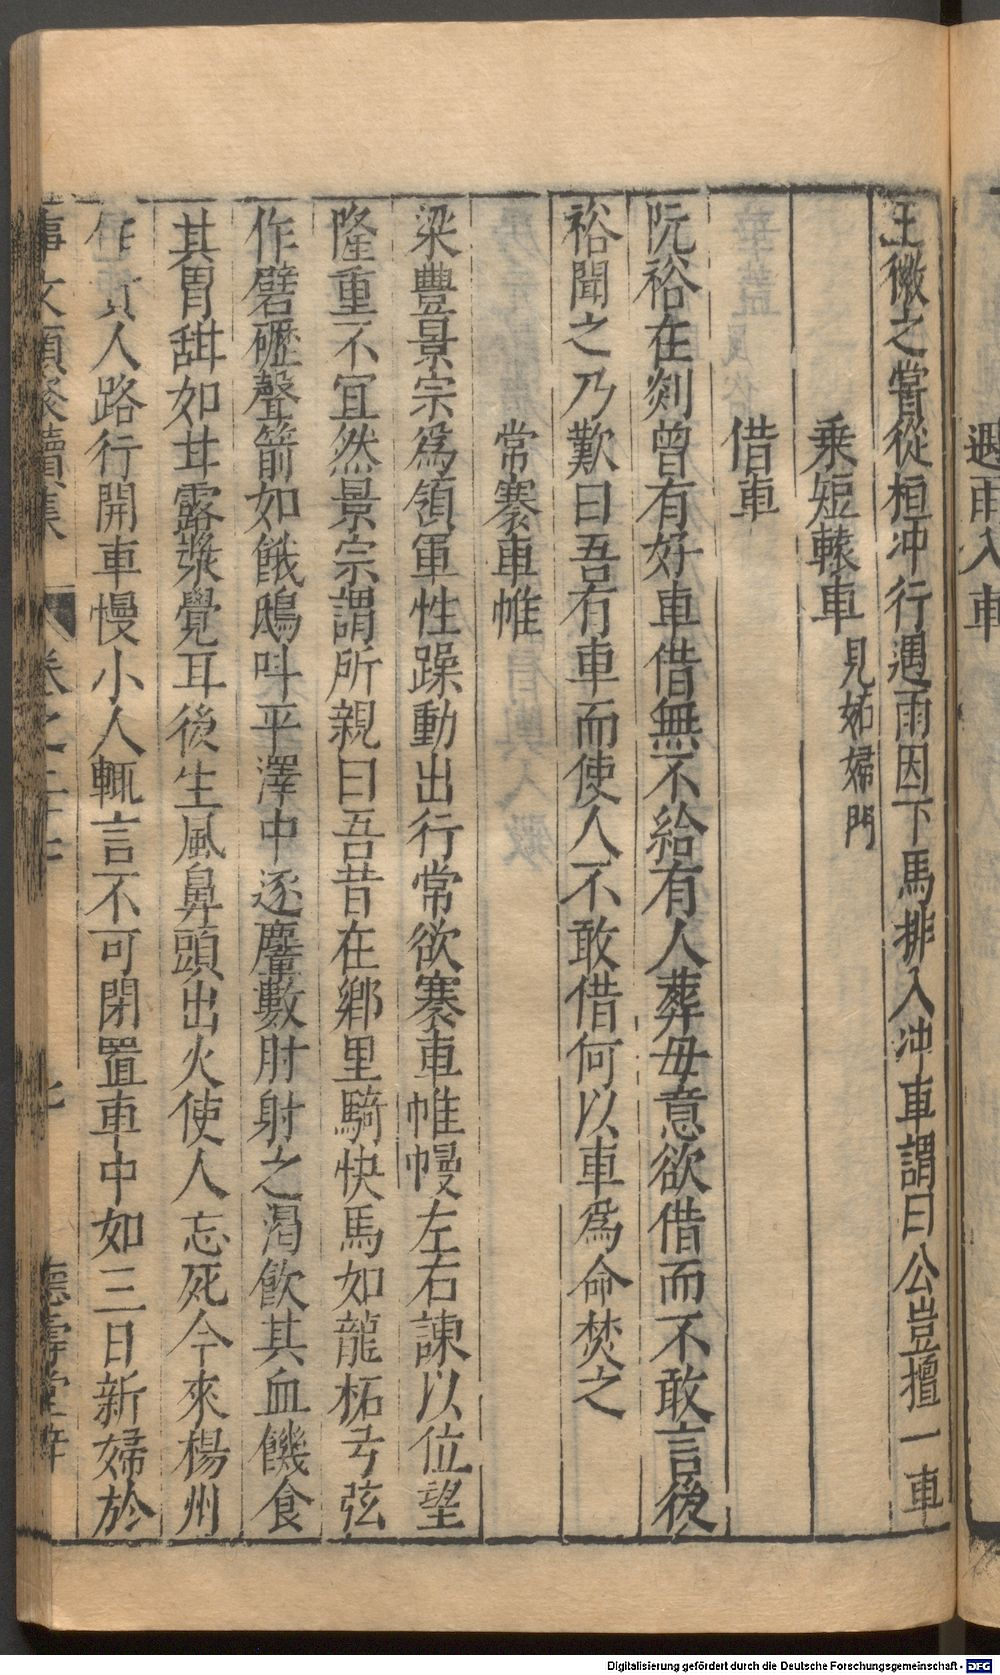 遇雨入車
王徽之嘗從桓沖行遇雨因下馬排入沖車謂曰公豈擅一車
乗短轅車見妬婦門
借車
阮裕在剡曾有好車借無不給有人葬母意欲借而不敢言後
裕聞之乃歎曰吾有車而使人不敢借何以車爲命焚之
常褰車帷
梁豐景宗爲領軍性躁動出行常欲褰車帷幔左右諫以位望
隆重不宜然景宗謂所親曰吾昔在鄉里騎快馬如龍柘弓弦
作礔礰聲箭如餓鴟呌平澤中逐麞數肘射之渴飲其血饑食
其胃甜如甘露漿覺耳後生風鼻頭出火使人忘死今來楊州
作貴人路行開車幔小人輒言不可閉置車中如三日新婦於
事文類聚續集 卷之二十七 七 德壽堂梓
Digitalisierung gefördert durch die Deutsche Forschungsgemeinschaft - DFG